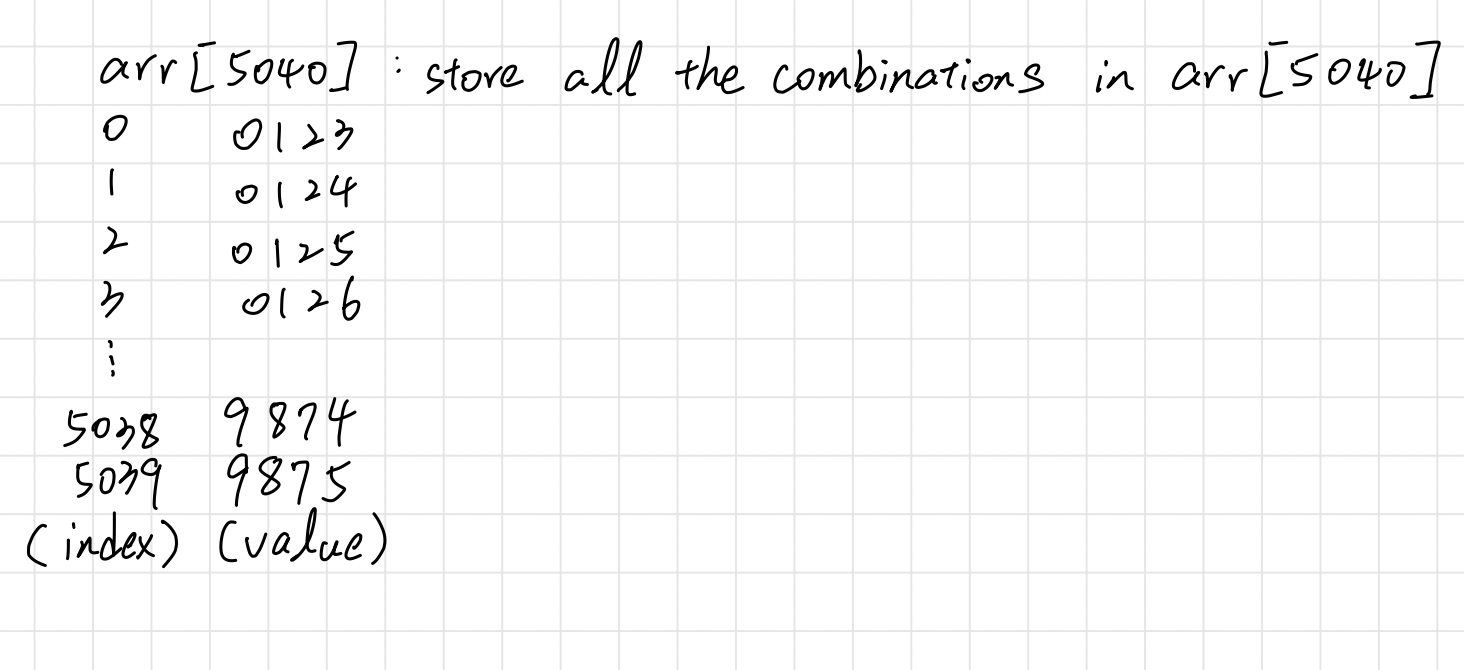 arr[5040] : store all the combinations in arr[5040]
0 0123
1 0124
2 0125
3 0126
⋮
5038 9874
5039 9875
(index) (value)